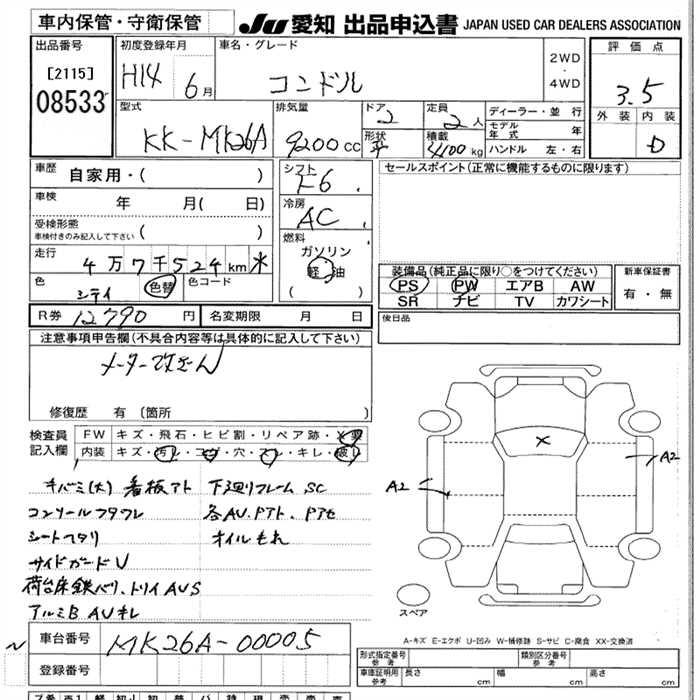 車内保管・守衛保管
JU 愛知 出品申込書 JAPAN USED CAR DEALERS ASSOCIATION
出品番号
[2115]
08533
初度登録年月
H14 6月
車名・グレード
コンドル
2WD
・
4WD
評価点
3.5
外装 内装
D
型式
KK-MK26A
排気量
9200cc
ドア
2
形状
平
定員
2人
積載
4100kg
ディーラー・並行
モデル年式 年
ハンドル 左・右
車歴 自家用・( )
車検 年 月( 日)
受検形態
車検付きのみ記入して下さい ( )
走行
4万7千524km ✳
色
シティ
色替
色コード
シフト
F6
冷房
AC
燃料
ガソリン
軽油
( )
セールスポイント(正常に機能するものに限ります)
装備品(純正品に限り○をつけてください)
PS PW エアB AW
SR ナビ TV カワシート
新車保証書
有・無
R券 12790円
名変期限 月 日
後日品
注意事項申告欄(不具合内容等は具体的に記入して下さい)
メーター改ざん
修復歴 有(箇所 )
検査員
記入欄
FW キズ・飛石・ヒビ割・リペア跡・X要
内装 キズ・汚レ・コゲ・穴・スレ・キレ・破レ
キバミ(大) 看板アト
下廻りフレーム SC
コンソールフタワレ
各AU.PTト.PTセ
シートヘタリ
オイルもれ
サイドガードU
荷台床鉄バリ.トリイAUS
アルミB AUキレ
A2
A2
スペア
A-キズ E-エクボ U-凹み W-補修跡 S-サビ C-腐食 XX-交換済
車台番号 MK26A-00005
登録番号
形式指定番号
参考
類別区分番号
参考
車庫証明用
参考
長さ cm
幅 cm
高さ cm